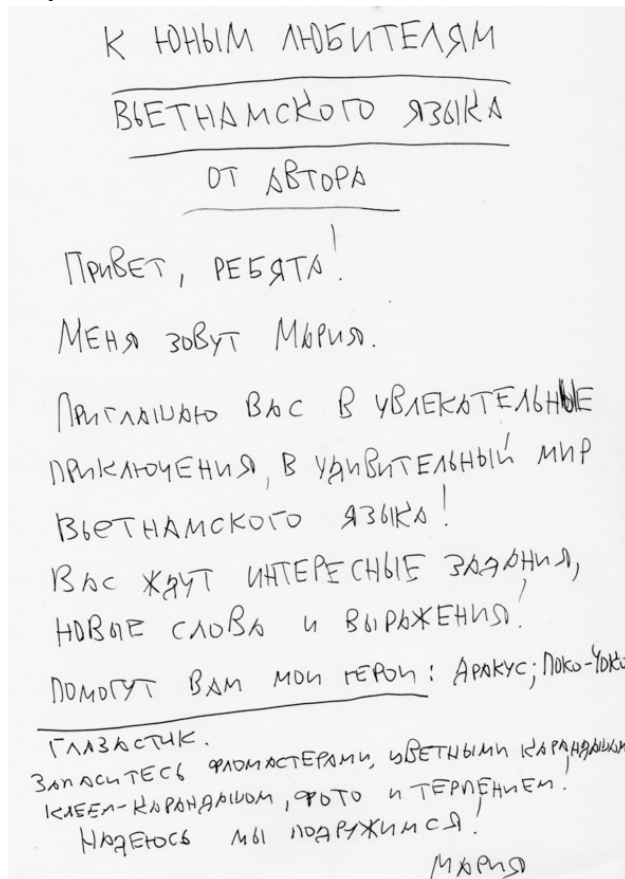 К ЮНЫМ ЛЮБИТЕЛЯМ
ВЬЕТНАМСКОГО ЯЗЫКА
ОТ АВТОРА
ПРИВЕТ, РЕБЯТА!
МЕНЯ ЗОВУТ МАРИЯ.
ПРИГЛАШАЮ ВАС В УВЛЕКАТЕЛЬНЫЕ
ПРИКЛЮЧЕНИЯ, В УДИВИТЕЛЬНЫЙ МИР
ВЬЕТНАМСКОГО ЯЗЫКА!
ВАС ЖДУТ ИНТЕРЕСНЫЕ ЗАДАНИЯ,
НОВЫЕ СЛОВА И ВЫРАЖЕНИЯ!
ПОМОГУТ ВАМ МОИ ГЕРОИ: АРАКУС, ПОКО-ЧОКО
ГЛАЗАСТИК.
ЗАПАСИТЕСЬ ФЛОМАСТЕРАМИ, ЦВЕТНЫМИ КАРАНДАШАМИ
КЛЕЕМ-КАРАНДАШОМ, ФОТО И ТЕРПЕНИЕМ!
НАДЕЮСЬ МЫ ПОДРУЖИМСЯ!
МАРИЯ